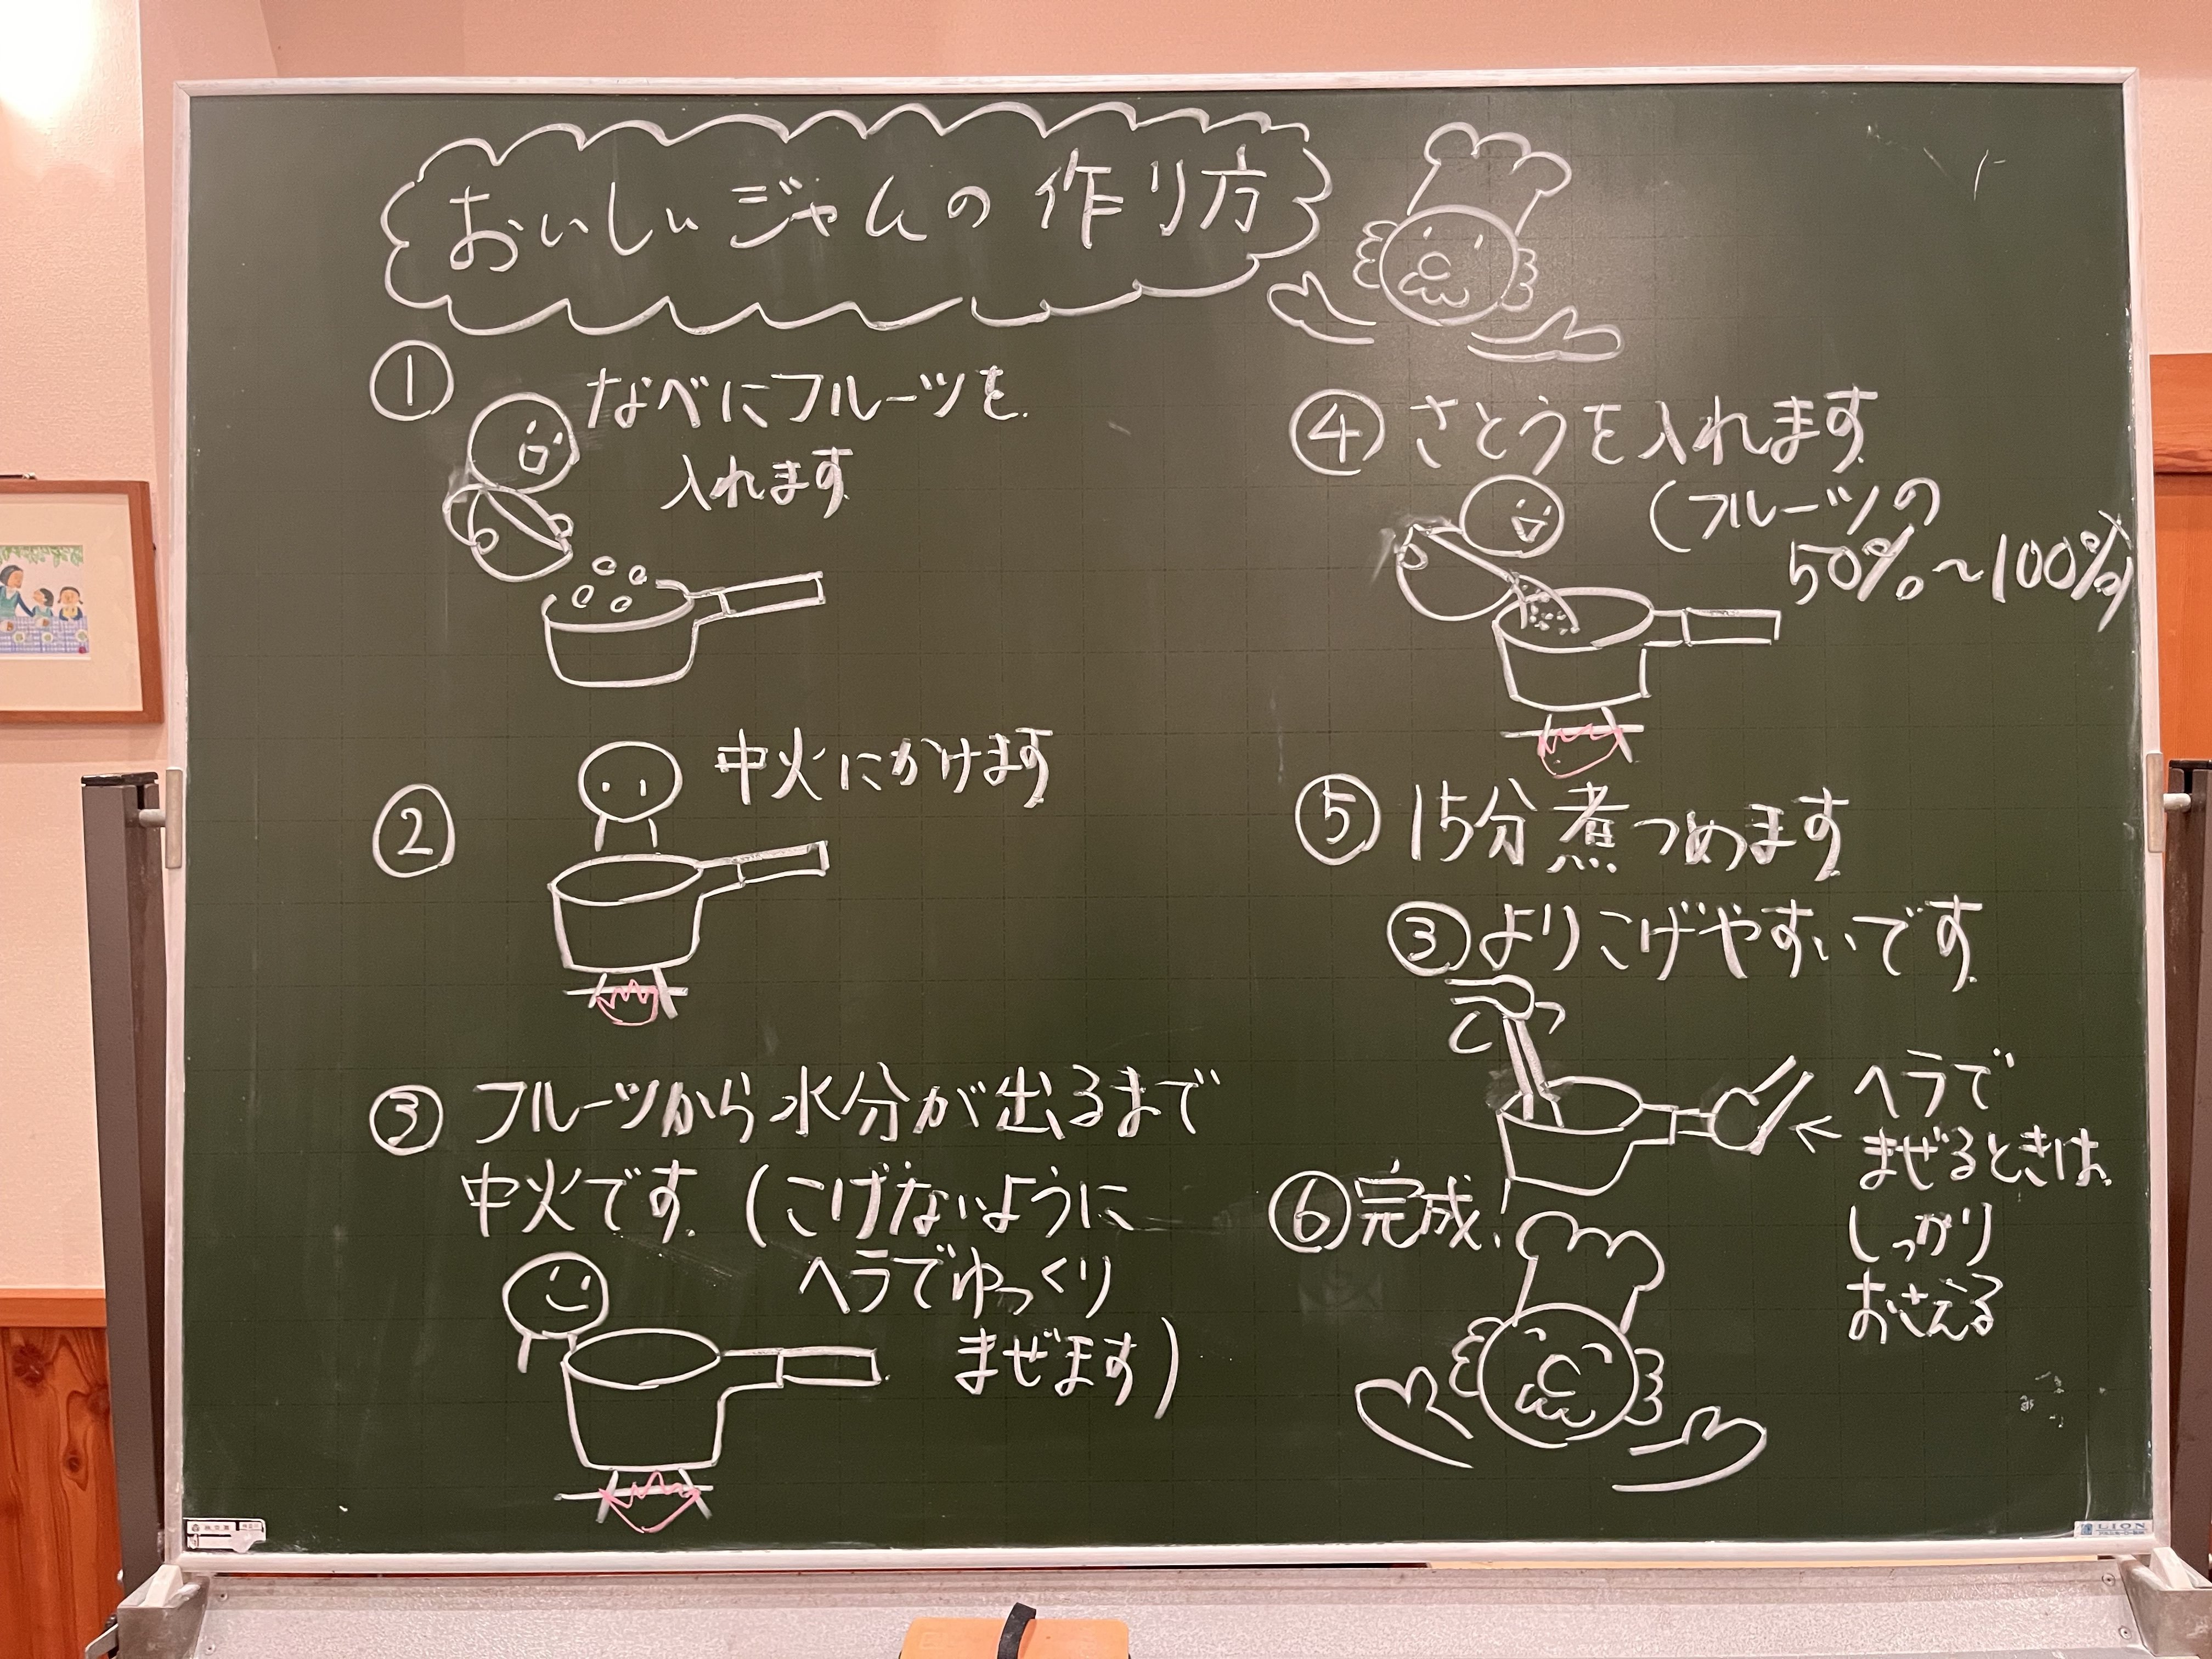 おいしいジャムの作り方
① なべにフルーツを
入れます
② 中火にかけます
③ フルーツから水分が出るまで
中火です (こげないように
ヘラでゆっくり
まぜます)
④ さとうを入れます
(フルーツの
50%〜100%)
⑤ 15分煮つめます
③よりこげやすいです
← ヘラで
まぜるときは
しっかり
おさえる
⑥ 完成!
LION